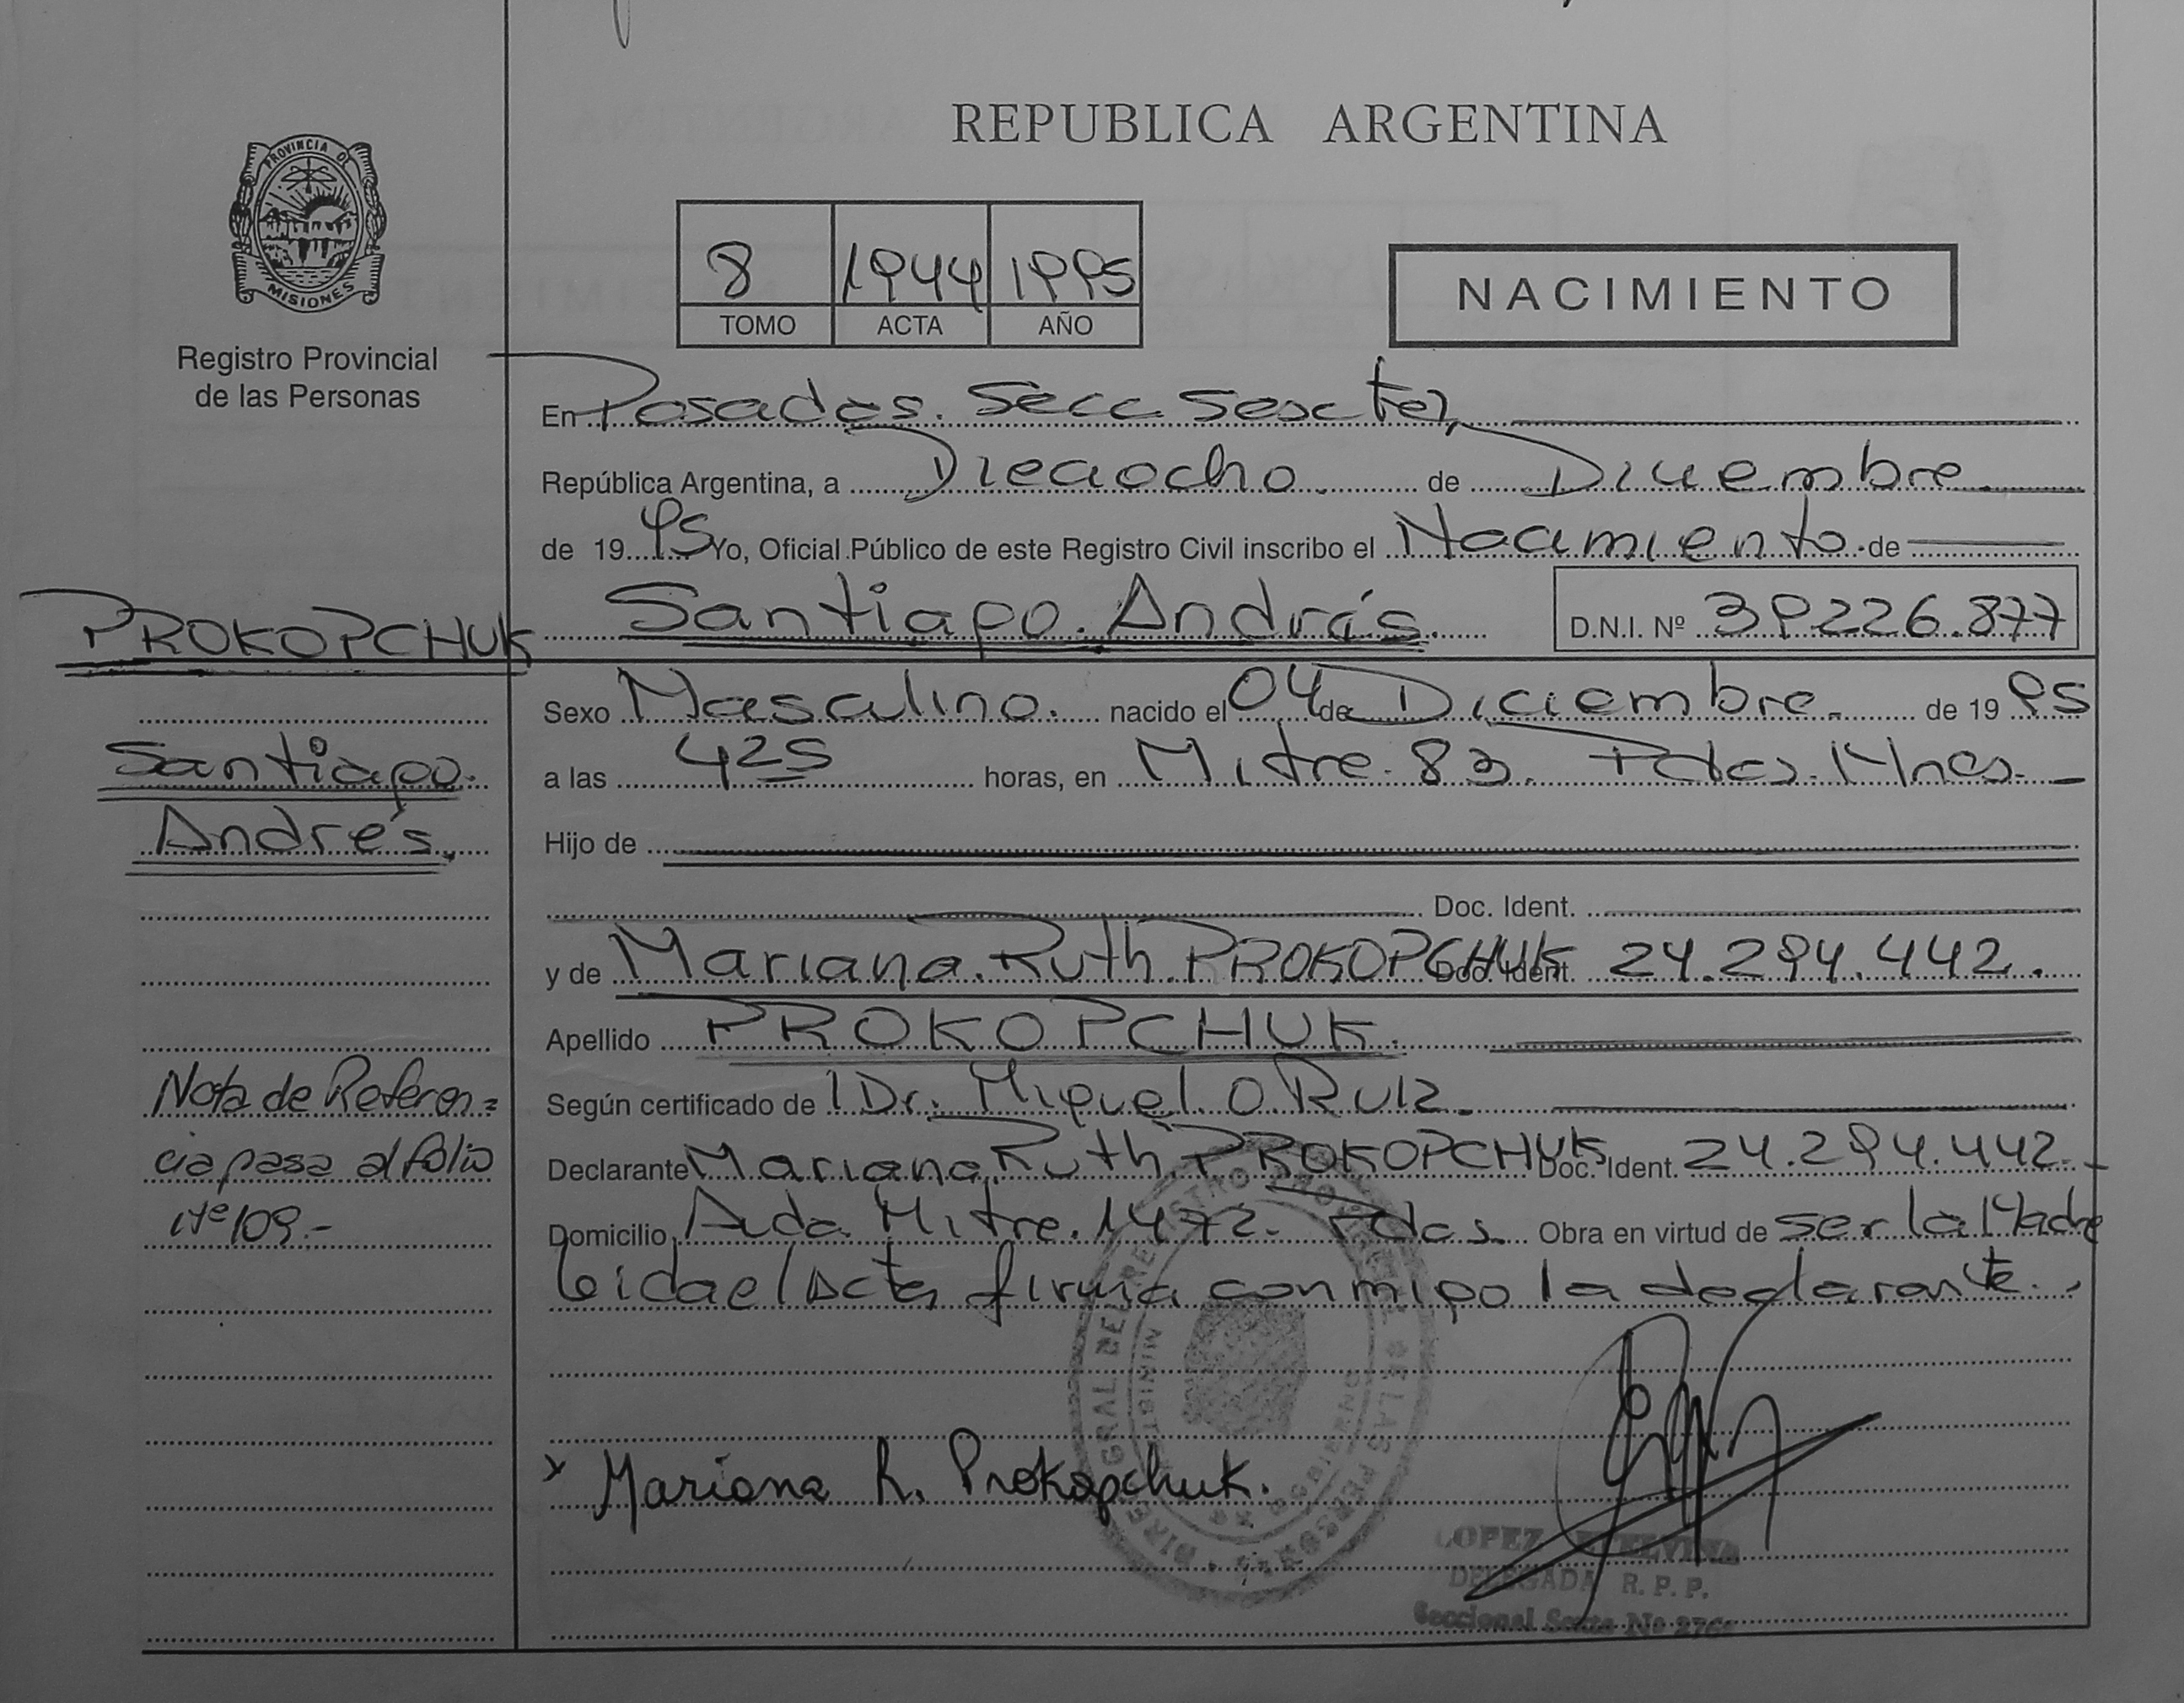 REPUBLICA ARGENTINA
PROVINCIA DE
MISIONES
Registro Provincial
de las Personas
8 1944 1995
TOMO ACTA AÑO
NACIMIENTO
En Posadas. Secc Sexta,
República Argentina, a Dieciocho de Diciembre
de 1995 Yo, Oficial Público de este Registro Civil inscribo el Nacimiento de
PROKOPCHUK
Santiago. Andrés. D.N.I. Nº 39226.877
Sexo Masculino. nacido el 04 de Diciembre de 1995
Santiago.
Andrés.
a las 425 horas, en Mitre. 83. Pdas. Mnes.
Hijo de
Doc. Ident.
y de Mariana. Ruth. PROKOPCHUK Doc. Ident. 24.294.442.
Apellido PROKOPCHUK.
Nota de Referen=
cia pasa al folio
Nº 109.-
Según certificado de Dr. Miguel O Ruiz.
Declarante Mariana. Ruth PROKOPCHUK Doc. Ident. 24.294.442.-
Domicilio Avda Mitre. 1472. Pdas. Obra en virtud de ser la Madre
Leida el Acta firma conmigo la declarante.
x Mariana R. Prokopchuk.
LOPEZ
DELEGADA R. P. P.
Seccional Sexta Nº